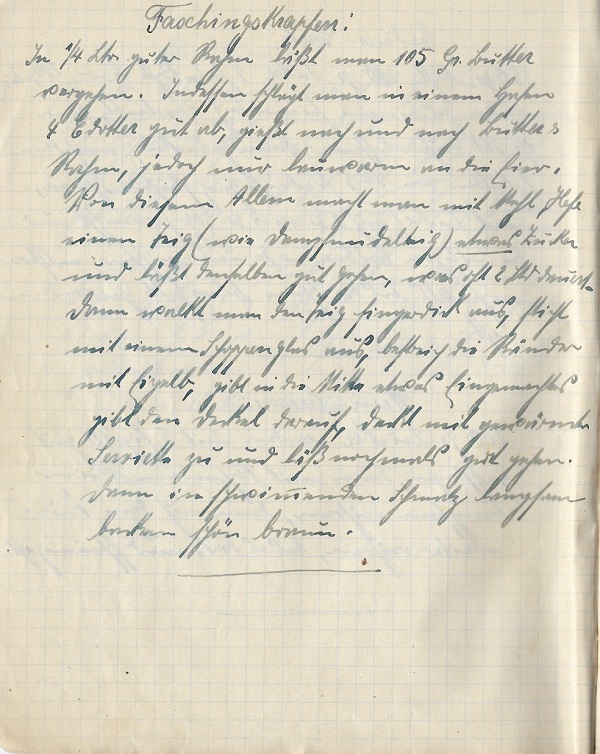 Faschingskrapfen:
In 1/4 Ltr. guter Rahm läßt man 105 Gr. Butter
vergehen. Indessen schlägt man in einem Hafen
4 Edotter gut ab, gießt nach und nach Butter &
Rahm, jedoch nur lauwarm an die Eier.
Von diesem Allem macht man mit Mehl Hefe
einen Teig (wie Dampfnudelteig) etwas Zucker
und läßt denselben gut gehen, was oft 2 Std dauert.
Dann walkt man den Teig fingerdick aus, sticht
mit einem Schoppenglas aus, bestreich die Ränder
mit Eigelb, gibt in die Mitte etwas Eingemachtes
gibt den Deckel darauf, deckt mit gewärmter
Serviette zu und läß nochmals gut gehen.
Dann in schwimmenden Schmalz langsam
backen schön braun.